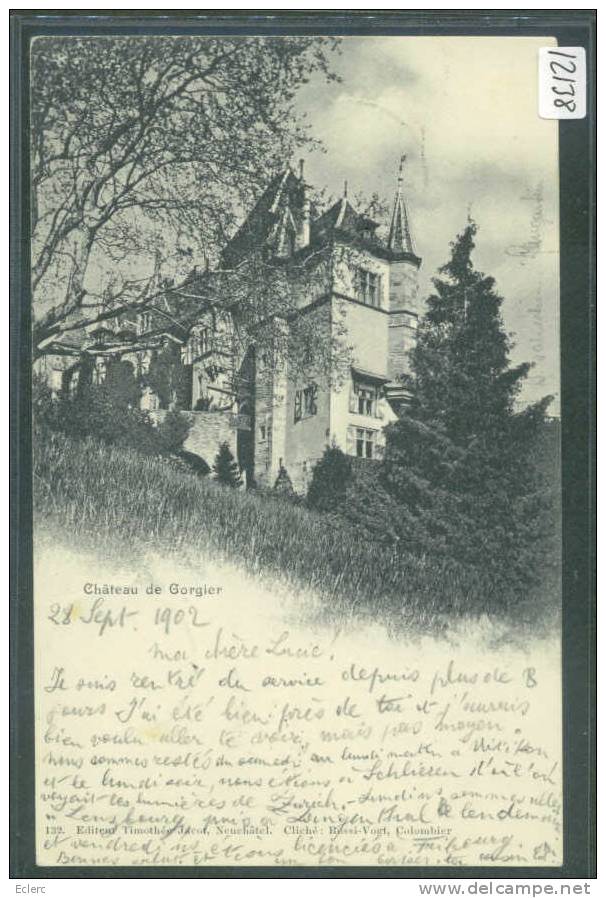 12138
Château de Gorgier
28 Sept. 1902
Ma chère Lucie!
Je suis rentré du service depuis plus de 8
jours J'ai été bien près de toi et j'aurais
bien voulu aller te voir, mais pas moyen.
nous sommes restés du samedi au lundi matin à
et le lundi soir, nous étions à Schlieren d'où l'on
voyait les lumières de Zürich,
à Lenzbourg puis à Langenthal le lendemain
132. Editeur Timothée Jacot, Neuchâtel. Cliché: Rossi-Vogt, Colombier
et vendredi ns étions licenciés à Fribourg.
Bonnes salut. et un bon baiser
Eclerc